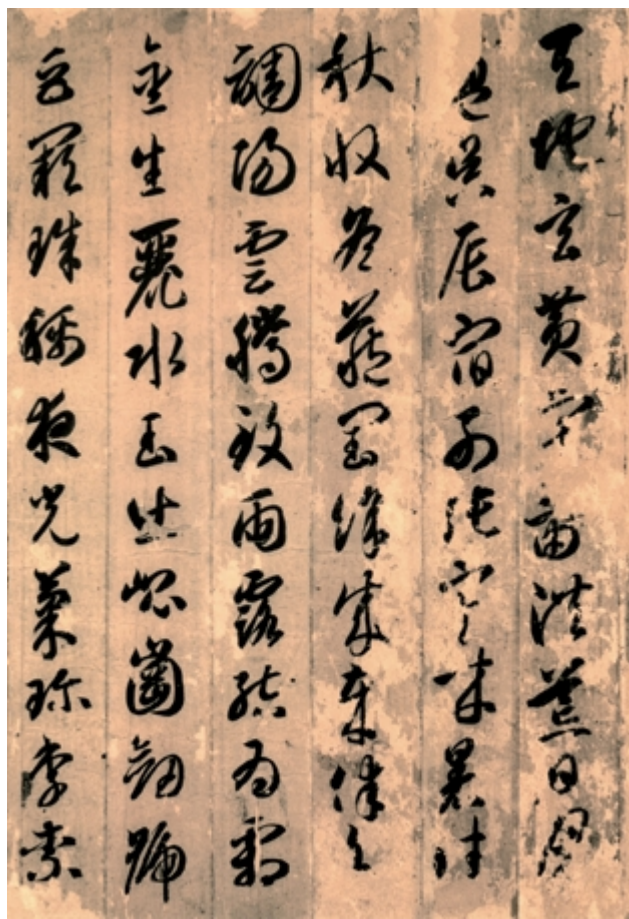 天地玄黃宇宙洪荒日月
盈昃辰宿列張寒來暑往
秋收冬藏閏餘成歲律呂
調陽雲騰致雨露結為霜
金生麗水玉出崑崗劍號
巨闕珠稱夜光菓珍李柰